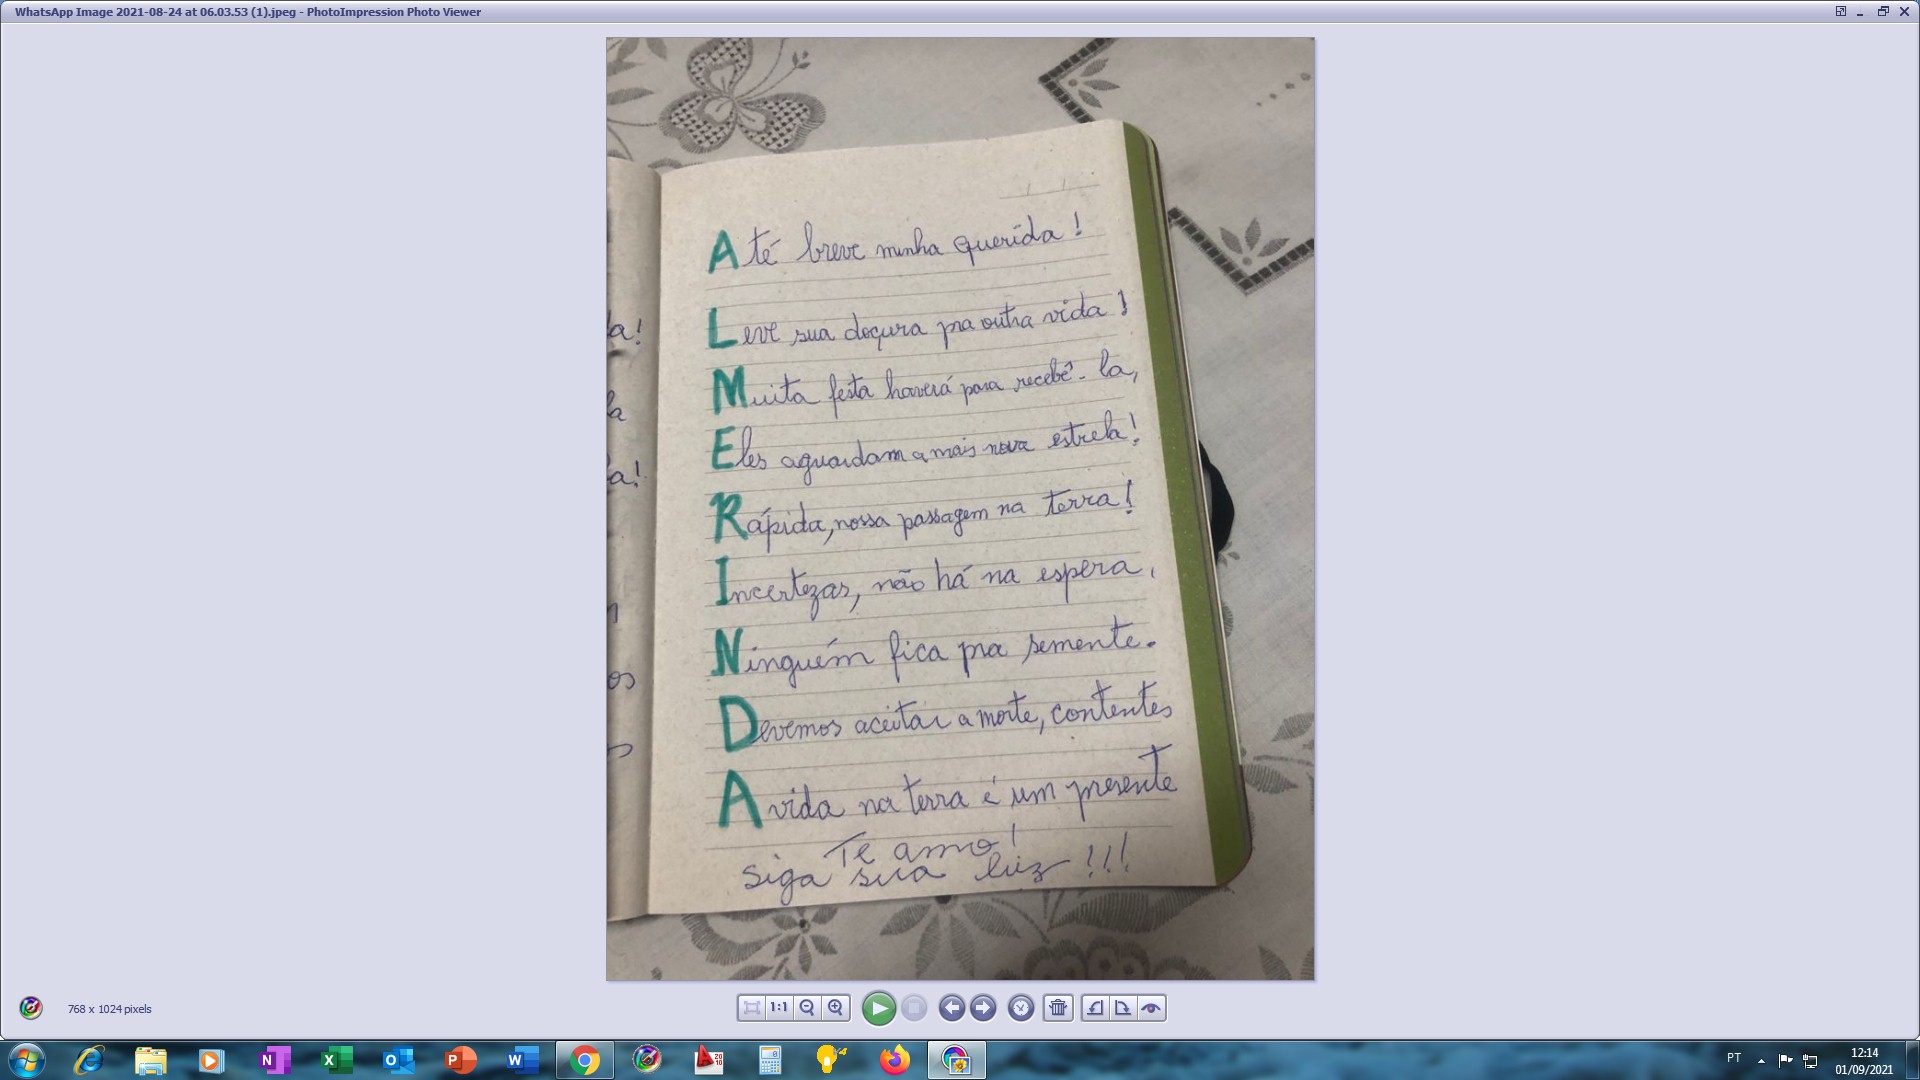 WhatsApp Image 2021-08-24 at 06.03.53 (1).jpeg - PhotoImpression Photo Viewer
Até breve minha querida!
Leve sua doçura pra outra vida!
Muita festa haverá para recebê-la,
Eles aguardam a mais nova estrela!
Rápida, nossa passagem na terra!
Incertezas, não há na espera,
Ninguém fica pra semente.
Devemos aceitar a morte, contentes
A vida na terra é um presente
Te amo!
Siga sua luz!!!
a!
la
a!
os
s
768 x 1024 pixels
1:1
PT
12:14
01/09/2021